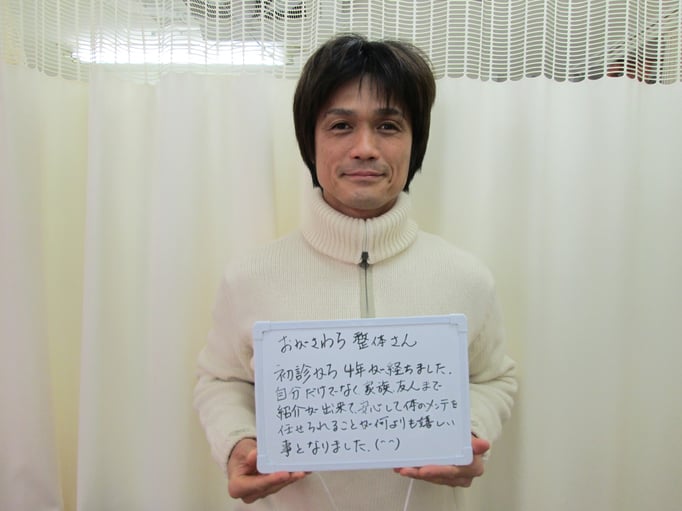 おがさわら 整体さん
初診から4年が経ちました.
自分だけでなく家族、友人まで
紹介が出来て、安心して体のメンテを
任せられることが何よりも嬉しい
事となりました.(^^)